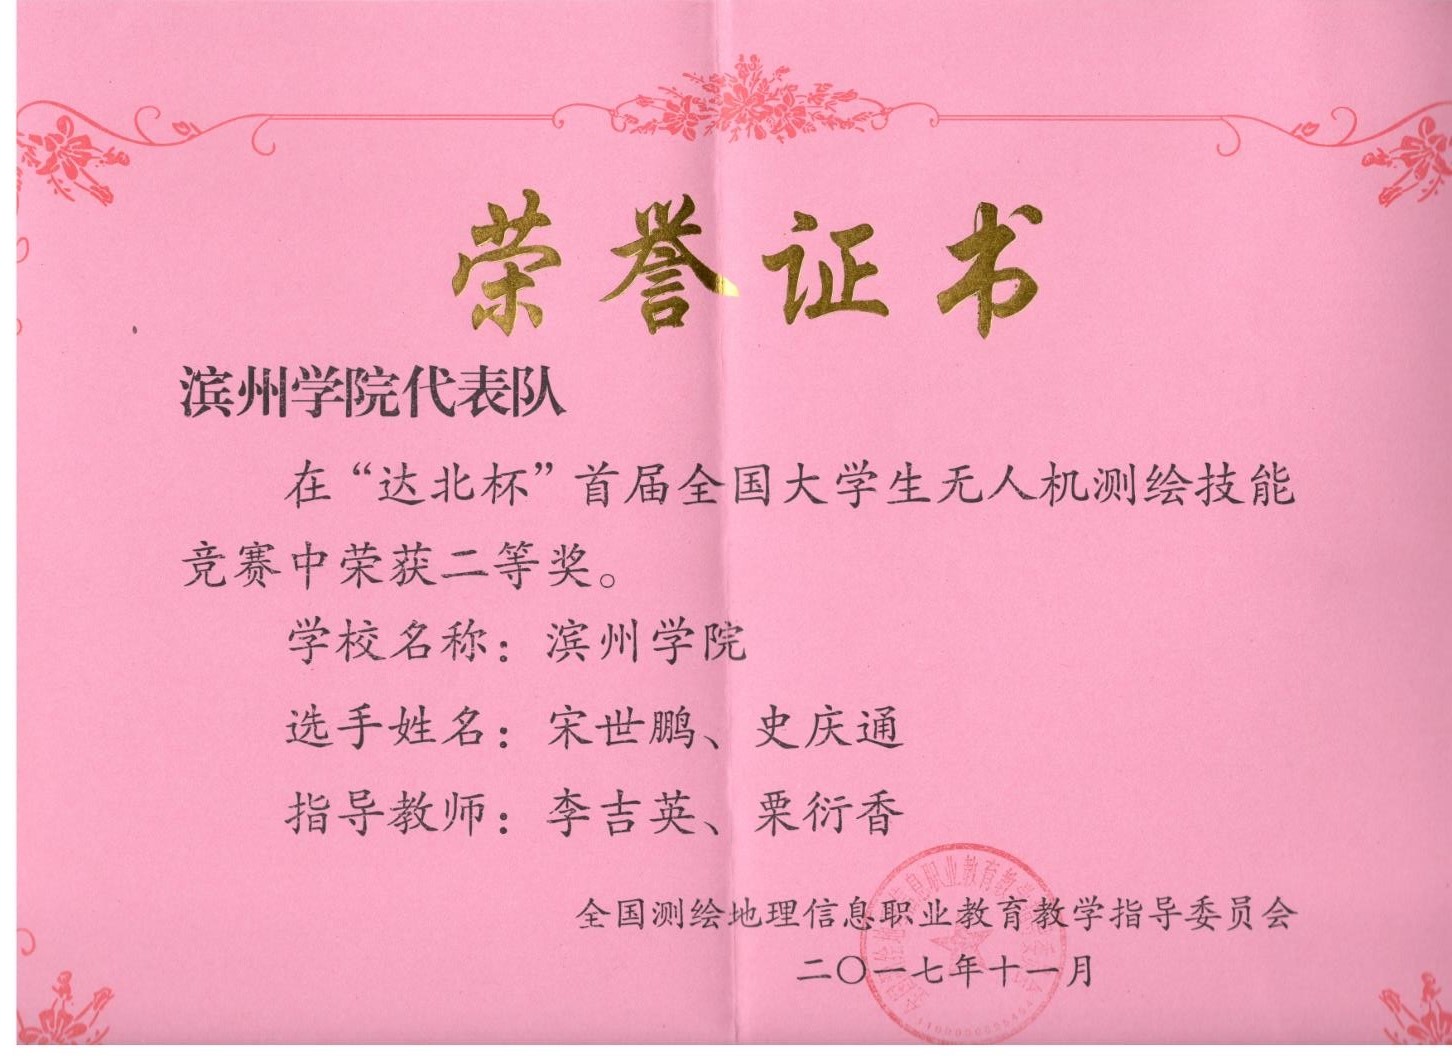 荣誉证书
滨州学院代表队
在“达北杯”首届全国大学生无人机测绘技能
竞赛中荣获二等奖。
学校名称：滨州学院
选手姓名：宋世鹏、史庆通
指导教师：李吉英、栗衍香
全国测绘地理信息职业教育教学指导委员会
二〇一七年十一月